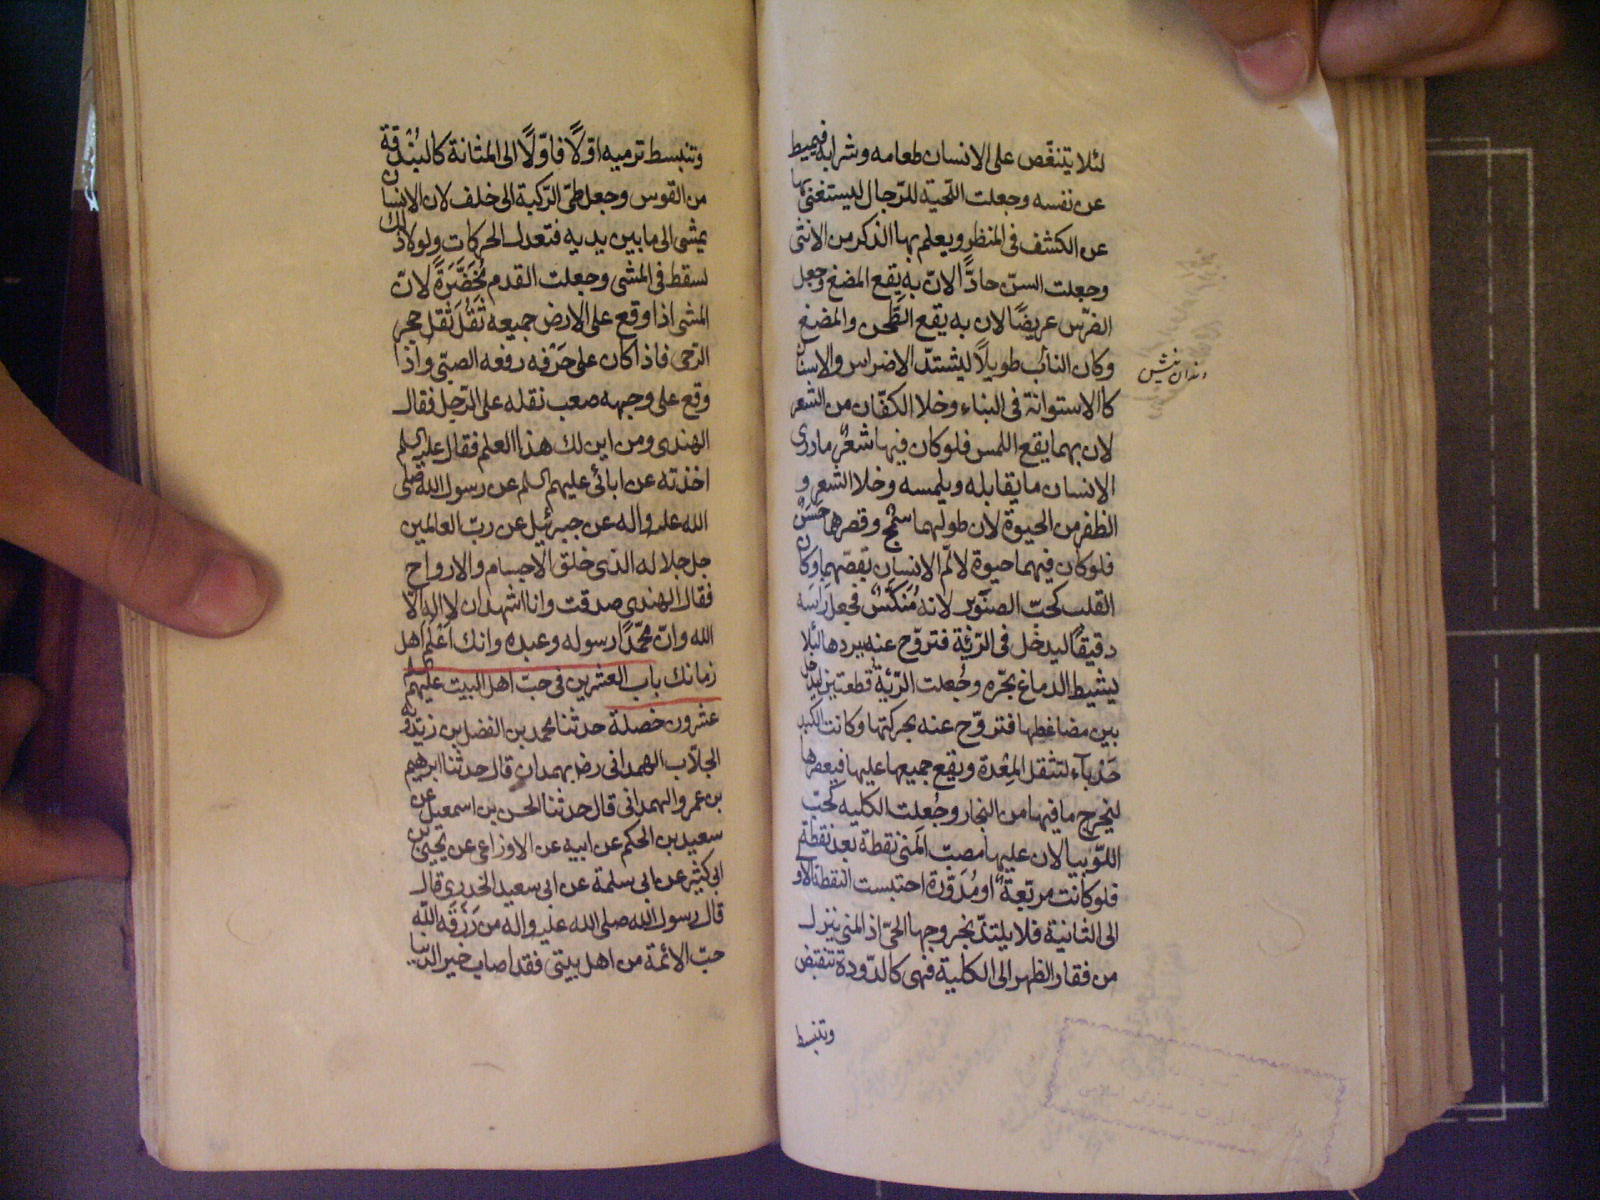 لئلا يتنغّص على الانسان طعامه وشرابه فيميط
عن نفسه وجعلت اللّحية للرّجال ليستغنى بها
عن الكشف فى المنظر ويعلم بها الذكر من الانثى
وجعلت السنّ حادًّا لانّ به يقع المضغ وجعل
الضّرس عريضًا لان به يقع الطّحن والمضغ
وكان الناب طويلًا ليشتدّ الاضراس والاسنان
كالاستوانة فى البناء وخلا الكفّان من الشعر
لان بهما يقع اللمس فلو كان فيها شعرٌ ما درى
الانسان ما يقابله ويلمسه وخلا الشعر و
الظفر من الحيوة لان طولهما سمج وقصرهما حسَنٌ
فلو كان فيهما حيوة لالّم الانسان بقصّهما وكان
القلب كحبّ الصنوبر لانه مُنكّسٌ فجعل رأسه
دقيقًا ليدخل فى الرّئة فتروّح عنه ببردها لئلا
يشيط الدماغ بحّره وجُعلت الرّئة قطعتين ليدخل
بين مضاغطها فتروّح عنه بحركتها وكانت الكبد
حَدْباء لتثقل المِعْدة ويقع جميعها عليها فيعصرها
ليخرج ما فيها من البخار وجُعلت الكلية كحبّ
اللّوبيا لان عليها مصبّ المنى نقطة بعد نقطة
فلو كانت مربّعة او مُدَوَّرة احتبست النقطة الاو
الى الثانية فلا يلتذّ بخروجها الحىّ اذ المنى ينزل
من فقار الظهر الى الكلية فهى كالدّودة تنقبض
وتنبسط
وتنبسط ترميه اوّلًا فاوّلًا الى المثانة كالبُنْدقة
من القوس وجعل طىّ الرّكبة الى خلف لان الانسان
يمشى الى ما بين يديه فتعدل الحركات ولولا ذلك
لسقط فى المشى وجعلت القدم مُخَصَّرَةً لانّ
المشى اذا وقع على الارض جميعه ثَقُلَ ثقل حجر
الرّحى فاذا كان على حَرْفه رفعه الصبّى واذا
وقع على وجهه صعب نقله على الرّجل فقال
الهندى ومن اين لك هذا العلم فقال عليه السلم
اخذته عن ابائى عليهم السلم عن رسول الله صلى
الله عليه واله عن جبرئيل عن ربّ العالمين
جل جلاله الذى خلق الاجسام والارواح
فقال الهندى صدقت وانا اشهد ان لا اله الّا
الله وانّ محمّدًا رسوله وعبده وانك اعْلم اهل
زمانك باب العشرين فى حبّ اهل البيت عليهم السلم
عشرون خصلة حدثنا محمد بن الفضل بن زيدويه
الجلّاب الهمدانى رض بهمدان قال حدثنا ابرهيم
بن عمرو الهمدانى قال حدثنا الحسن بن اسمعيل عن
سعيد بن الحكم عن ابيه عن الاوزاعى عن يحيى بن
ابى كثير عن ابى سلمة عن ابى سعيد الخدرى قال
قال رسول الله صلى الله عليه واله من رَزَقَه الله
حبّ الائمة من اهل بيتى فقد اصاب خير الدنيا